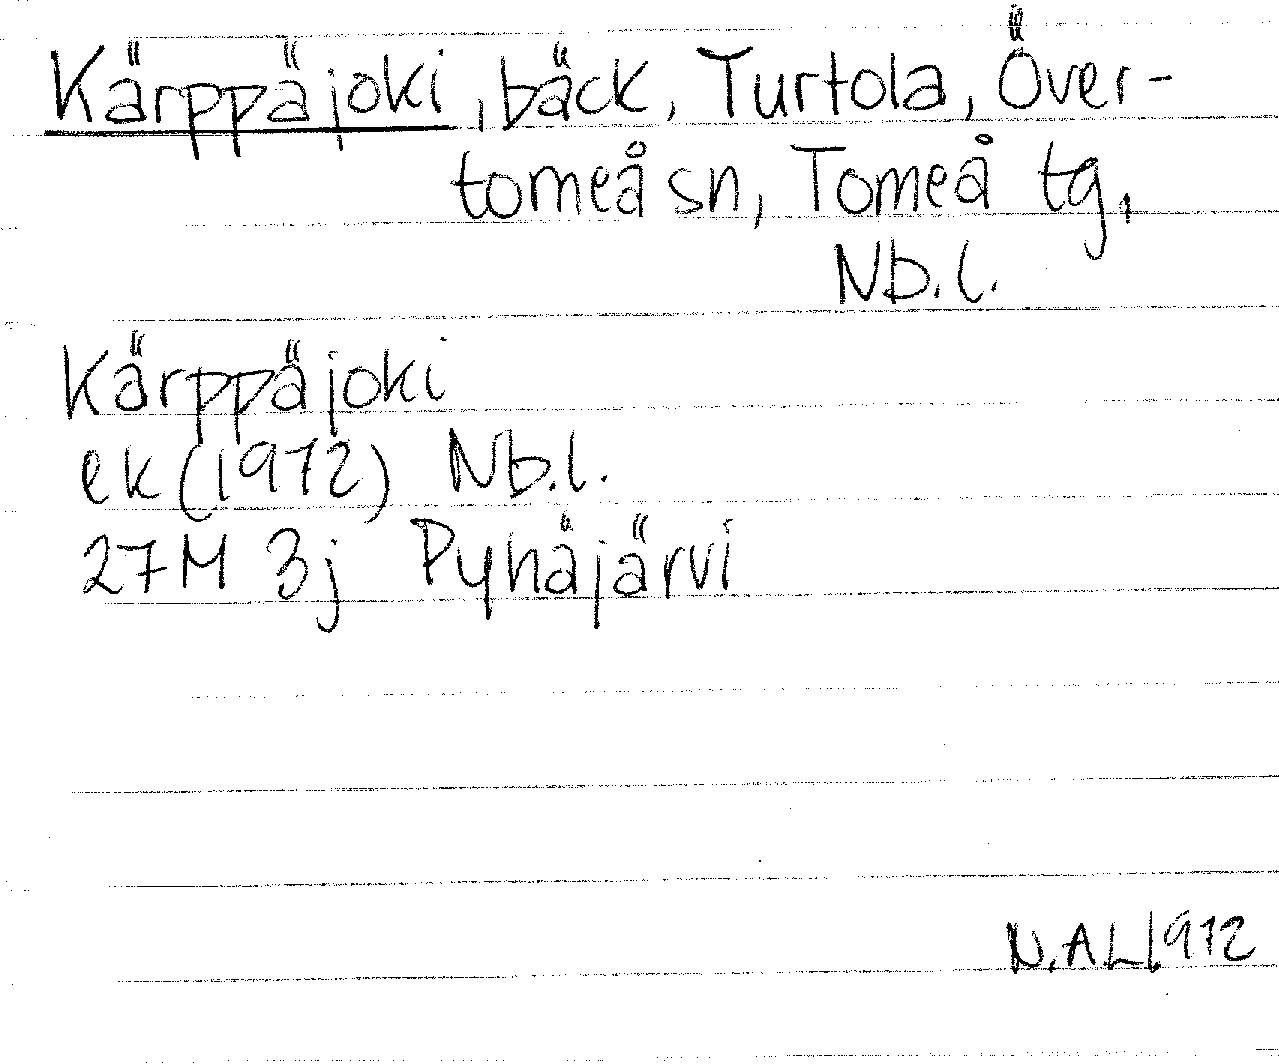 Kärppäjoki, bäck, Turtola, Över-
torneå sn, Torneå tg,
Nb.l.
Kärppäjoki
ek (1972) Nb.l.
27M 3j Pyhäjärvi
N.AL.1972